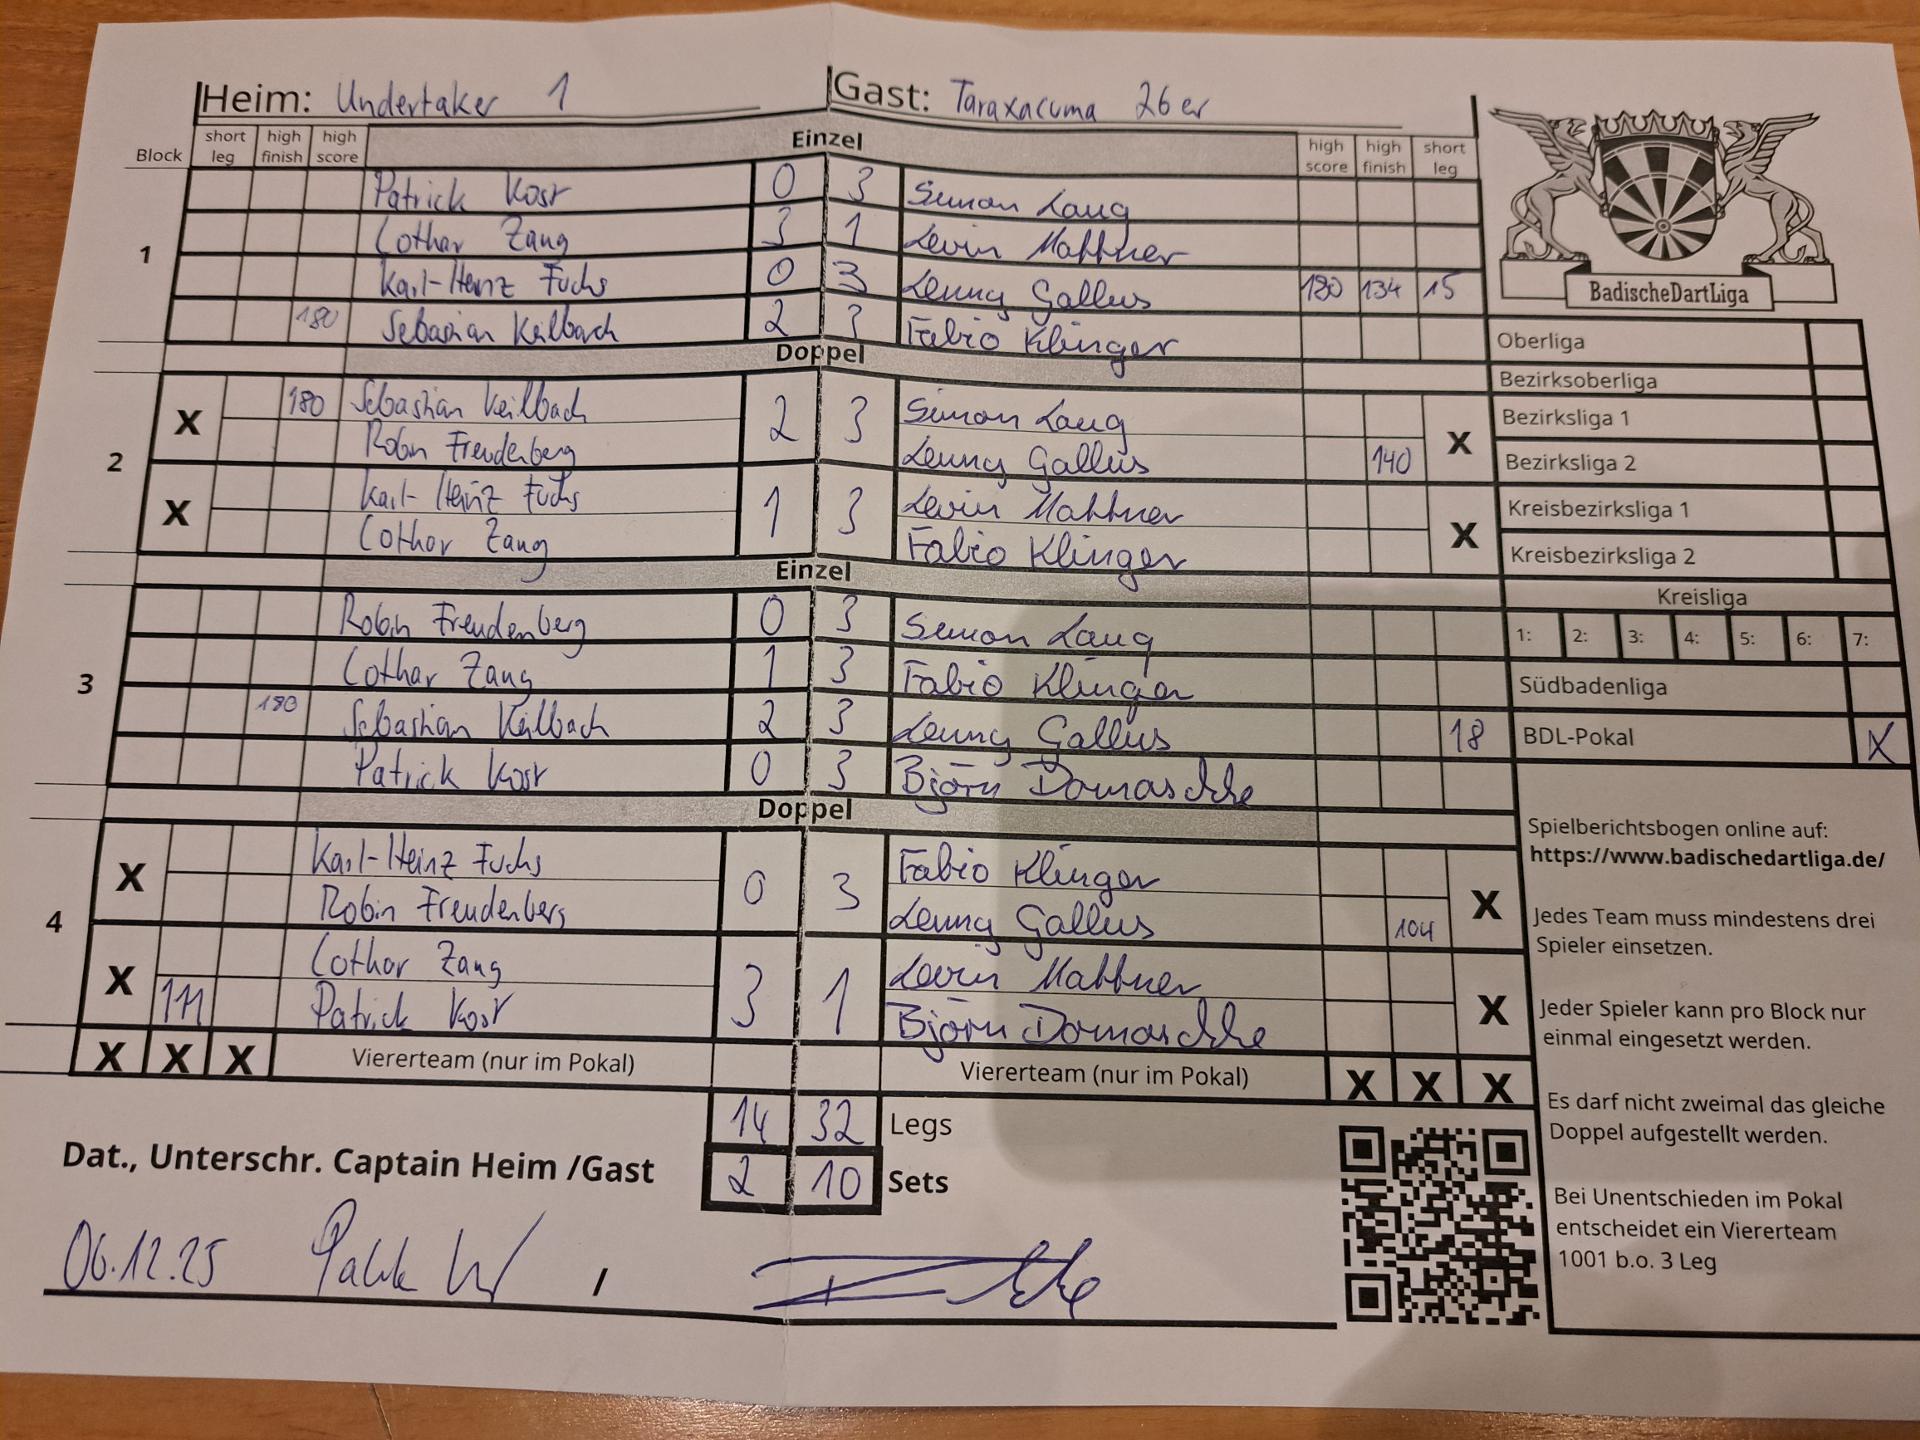 Heim: Undertaker 1 Gast: Taraxacuma 26er
Block short leg high finish high score Einzel high score high finish short leg
1
Patrick Kost 0 3 Simon Laug
Lothar Zang 3 1 Levin Mattner
Karl-Heinz Fuchs 0 3 Lenny Gallus 180 134 15
180 Sebastian Keilbach 2 3 Fabio Klinger
Doppel
2
X 180 Sebastian Keilbach 2 3 Simon Laug X
Robin Freudenberg Lenny Gallus 140
X Karl-Heinz Fuchs 1 3 Levin Mattner X
Lothar Zang Fabio Klinger
Einzel
3
Robin Freudenberg 0 3 Simon Laug
Lothar Zang 1 3 Fabio Klinger
180 Sebastian Keilbach 2 3 Lenny Gallus 18
Patrick Kost 0 3 Björn Domaschke
Doppel
4
X Karl-Heinz Fuchs 0 3 Fabio Klinger X
Robin Freudenberg Lenny Gallus 104
X Lothar Zang 3 1 Levin Mattner X
111 Patrick Kost Björn Domaschke
X X X Viererteam (nur im Pokal) Viererteam (nur im Pokal) X X X
14 32 Legs
2 10 Sets
Dat., Unterschr. Captain Heim /Gast
06.12.25 /
BadischeDartLiga
Oberliga
Bezirksoberliga
Bezirksliga 1
Bezirksliga 2
Kreisbezirksliga 1
Kreisbezirksliga 2
Kreisliga
1: 2: 3: 4: 5: 6: 7:
Südbadenliga
BDL-Pokal X
Spielberichtsbogen online auf:
https://www.badischedartliga.de/
Jedes Team muss mindestens drei
Spieler einsetzen.
Jeder Spieler kann pro Block nur
einmal eingesetzt werden.
Es darf nicht zweimal das gleiche
Doppel aufgestellt werden.
Bei Unentschieden im Pokal
entscheidet ein Viererteam
1001 b.o. 3 Leg